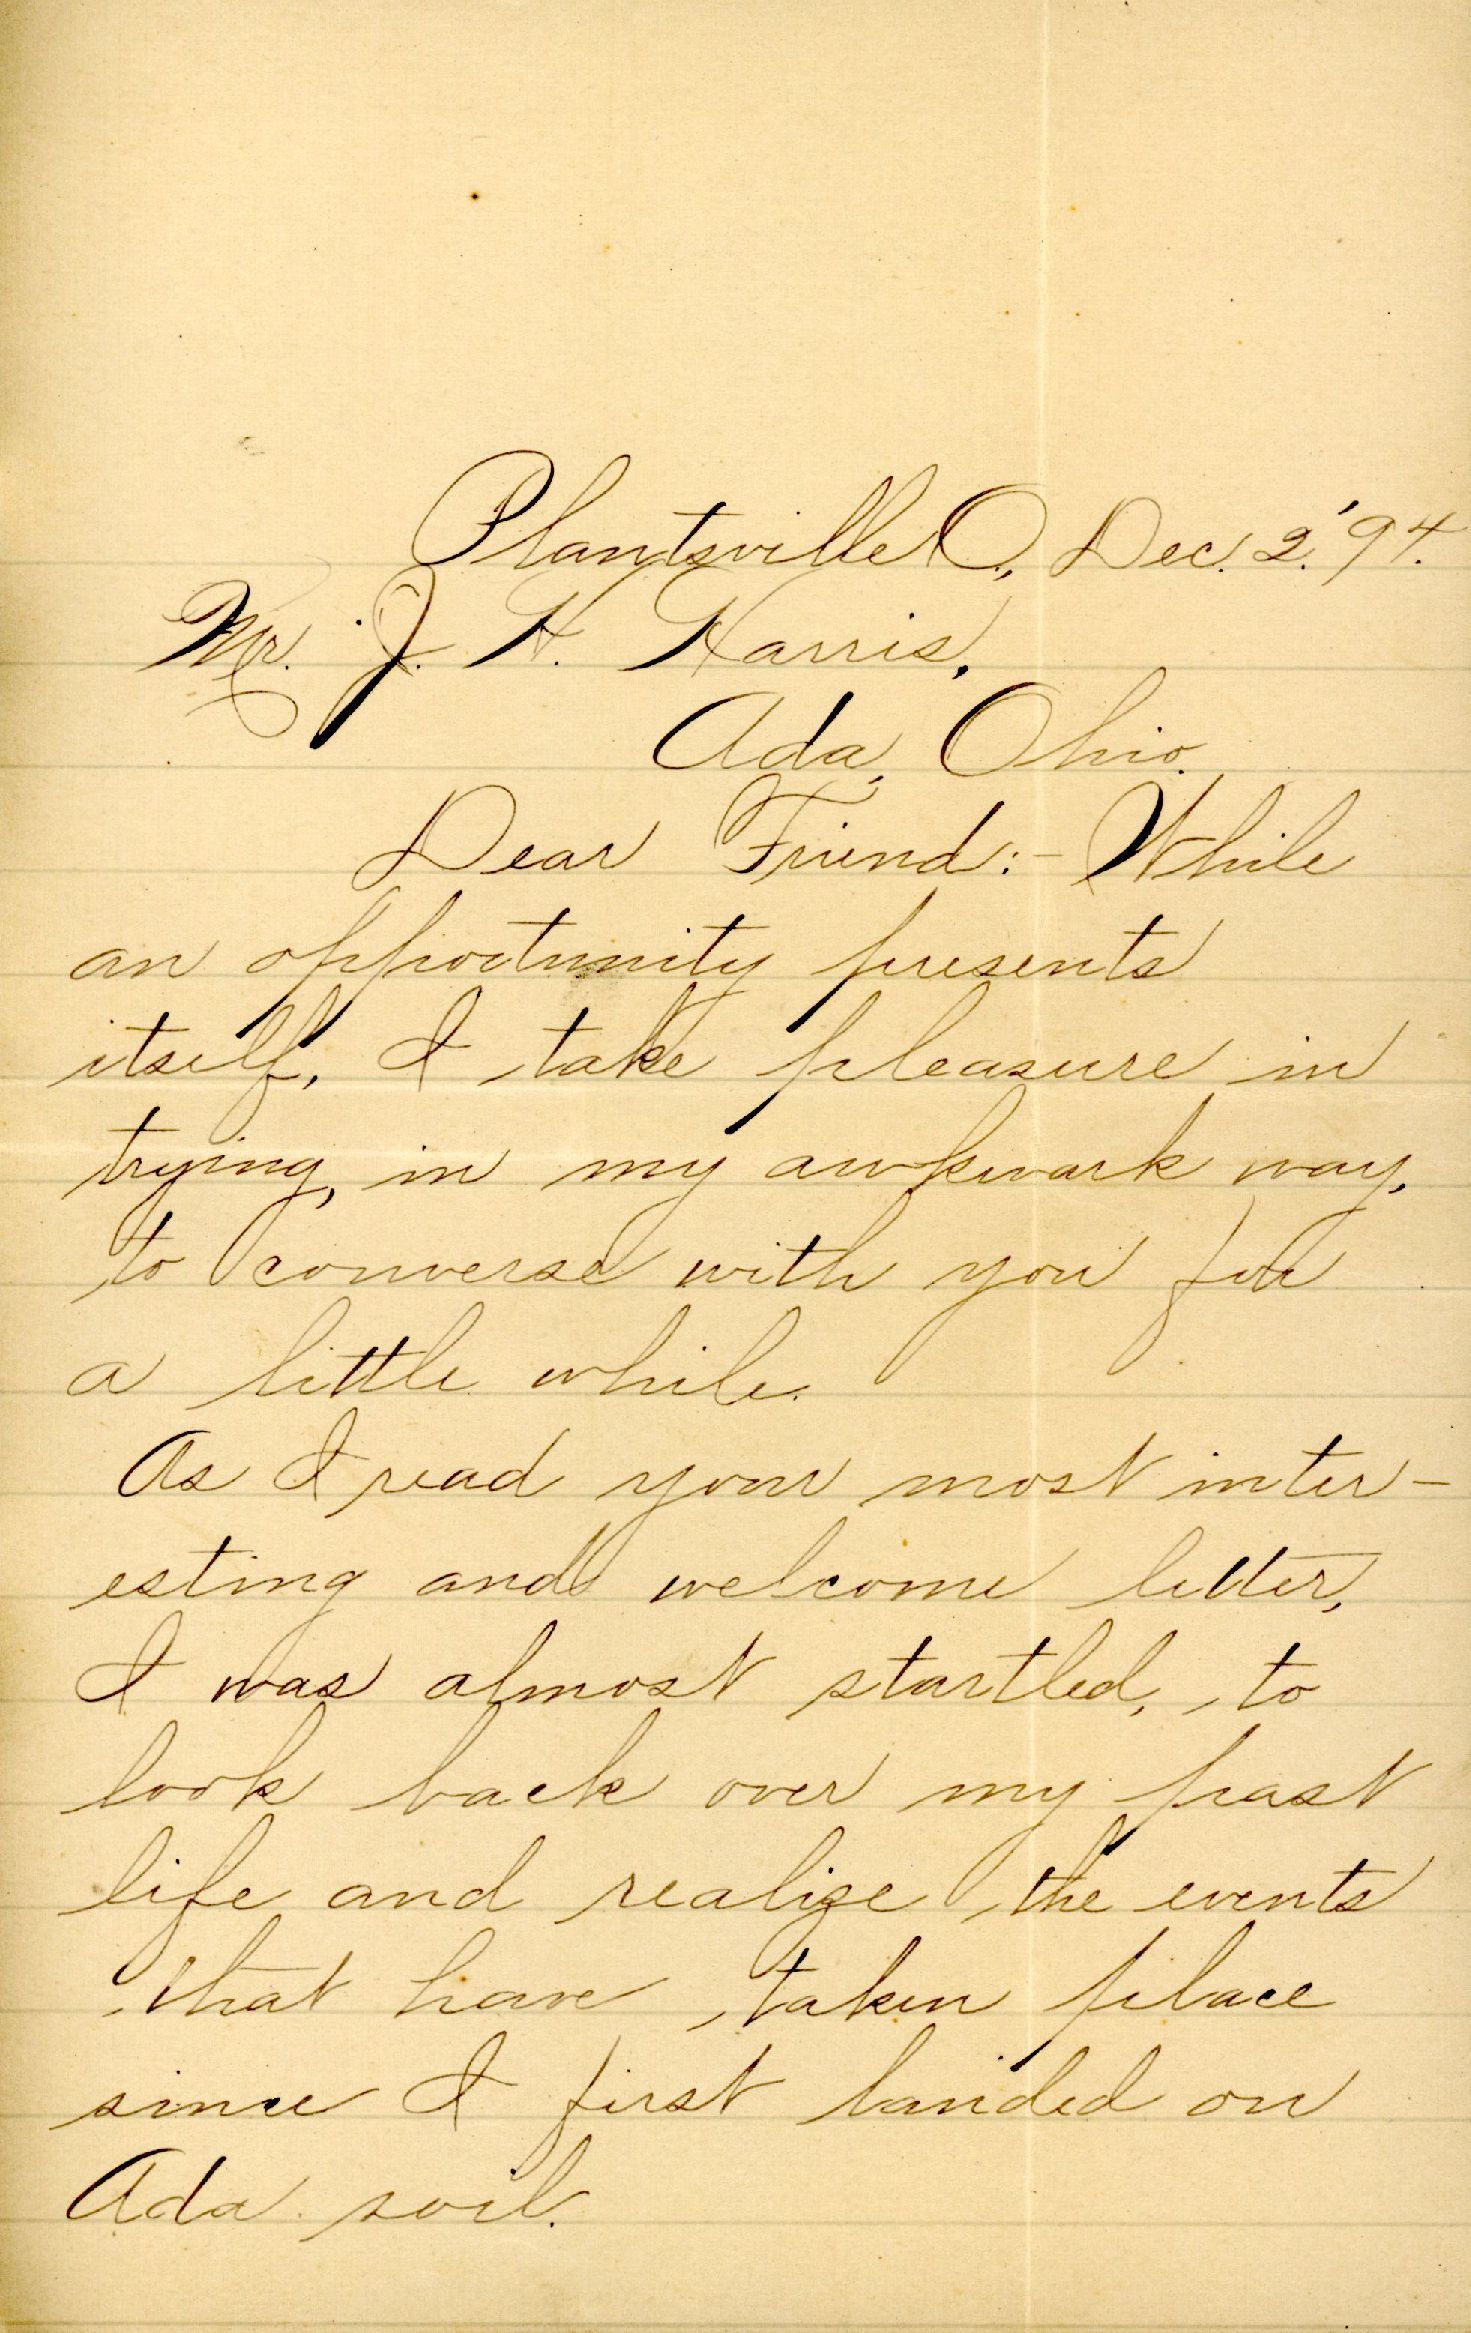 Plantsville O., Dec. 2, '94.
Mr. J. H. Harris,
Ada, Ohio.
Dear Friend:- While
an opportunity presents
itself, I take pleasure in
trying, in my awkwark way,
to converse with you for
a little while.
As I read your most inter-
esting and welcome letter,
I was almost startled, to
look back over my past
life and realize the events
that have taken place
since I first landed on
Ada soil.